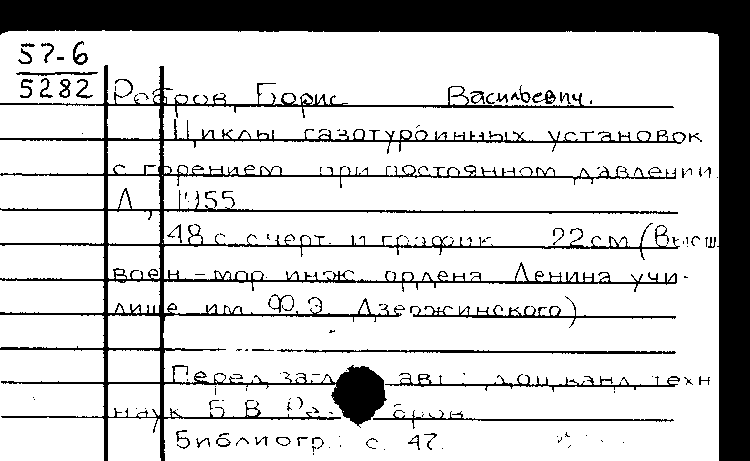 57-6
5282
Ребров, Борис Васильевич.
Циклы газотурбинных установок
с горением при постоянном давлении
Л., 1955
48 с. с черт. и график. 22 см (Высш.
воен-мор. инж. ордена Ленина учи-
лище им. Ф.Э. Дзержинского)
Перед загл. авт.: доц. канд. техн.
наук Б. В. Ребров
Библиогр.: с. 47.